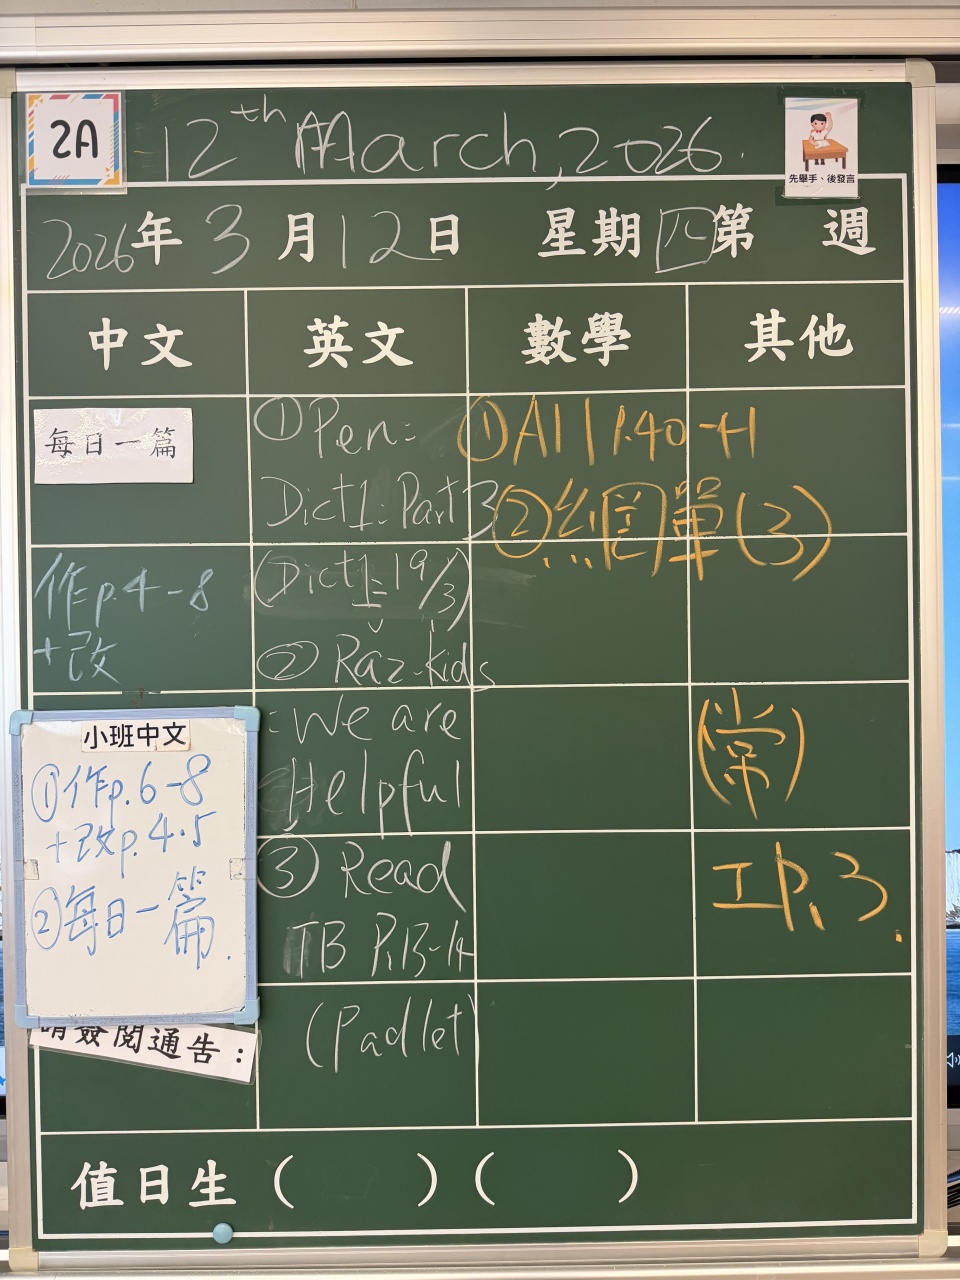 2A
12th March, 2026.
先舉手、後發言
2026年3月12日 星期四第 週
中文 英文 數學 其他
每日一篇
作p.4-8
+改
小班中文
①作p.6-8
+改p.4.5
②每日一篇.
請簽閱通告:
①Pen:
Dict1: Part 3
(Dict1: 19/3)
② Raz-kids
- We are
Helpful
③ Read
TB P.13-14
(Padlet
①A11 P.40-41
②網單(3)
(常)
工P.3.
值日生 ( ) ( )